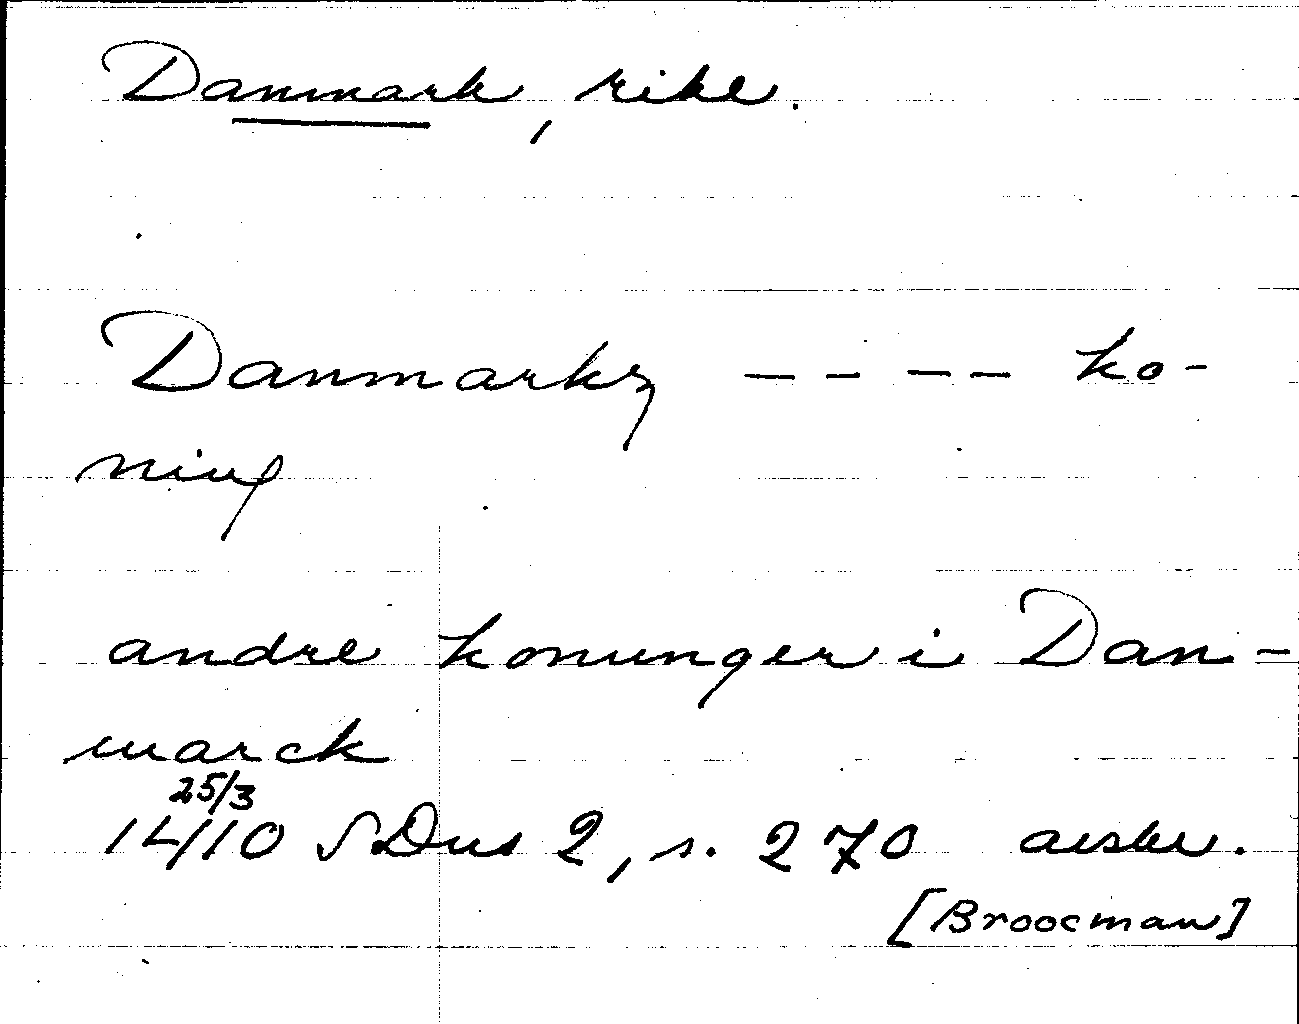 Danmark, rike.
Danmarkz - - - - ko-
ning
andre konunger i Dan-
marck
25/3
1410 SDns 2, s. 270 avskr.
[Broocman]